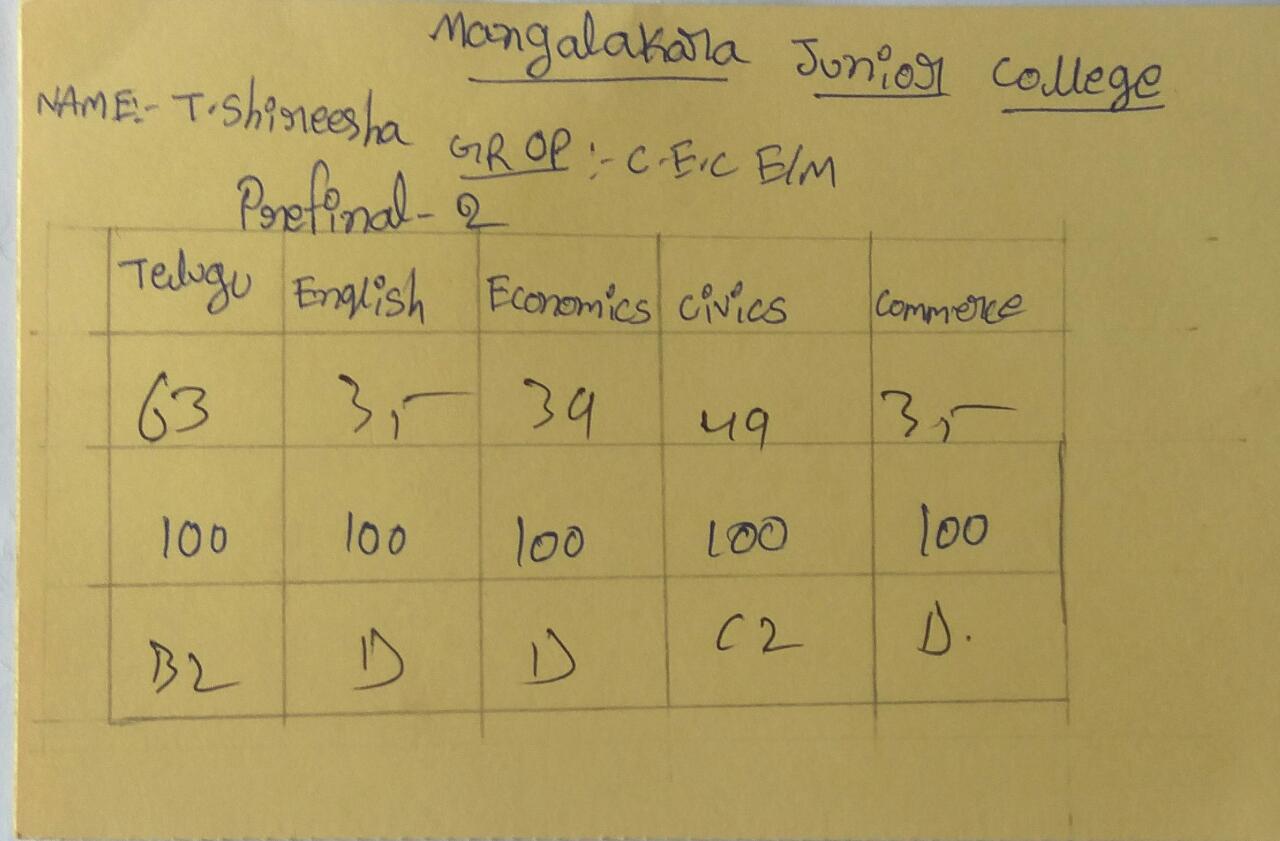 Mangalakara Junior College
NAME:- T.Shireesha
GROP :- C.E.C E/M
Prefinal - 2
Telugu English Economics Civics Commerce
63 35 39 49 35
100 100 100 100 100
B2 D D C2 D.